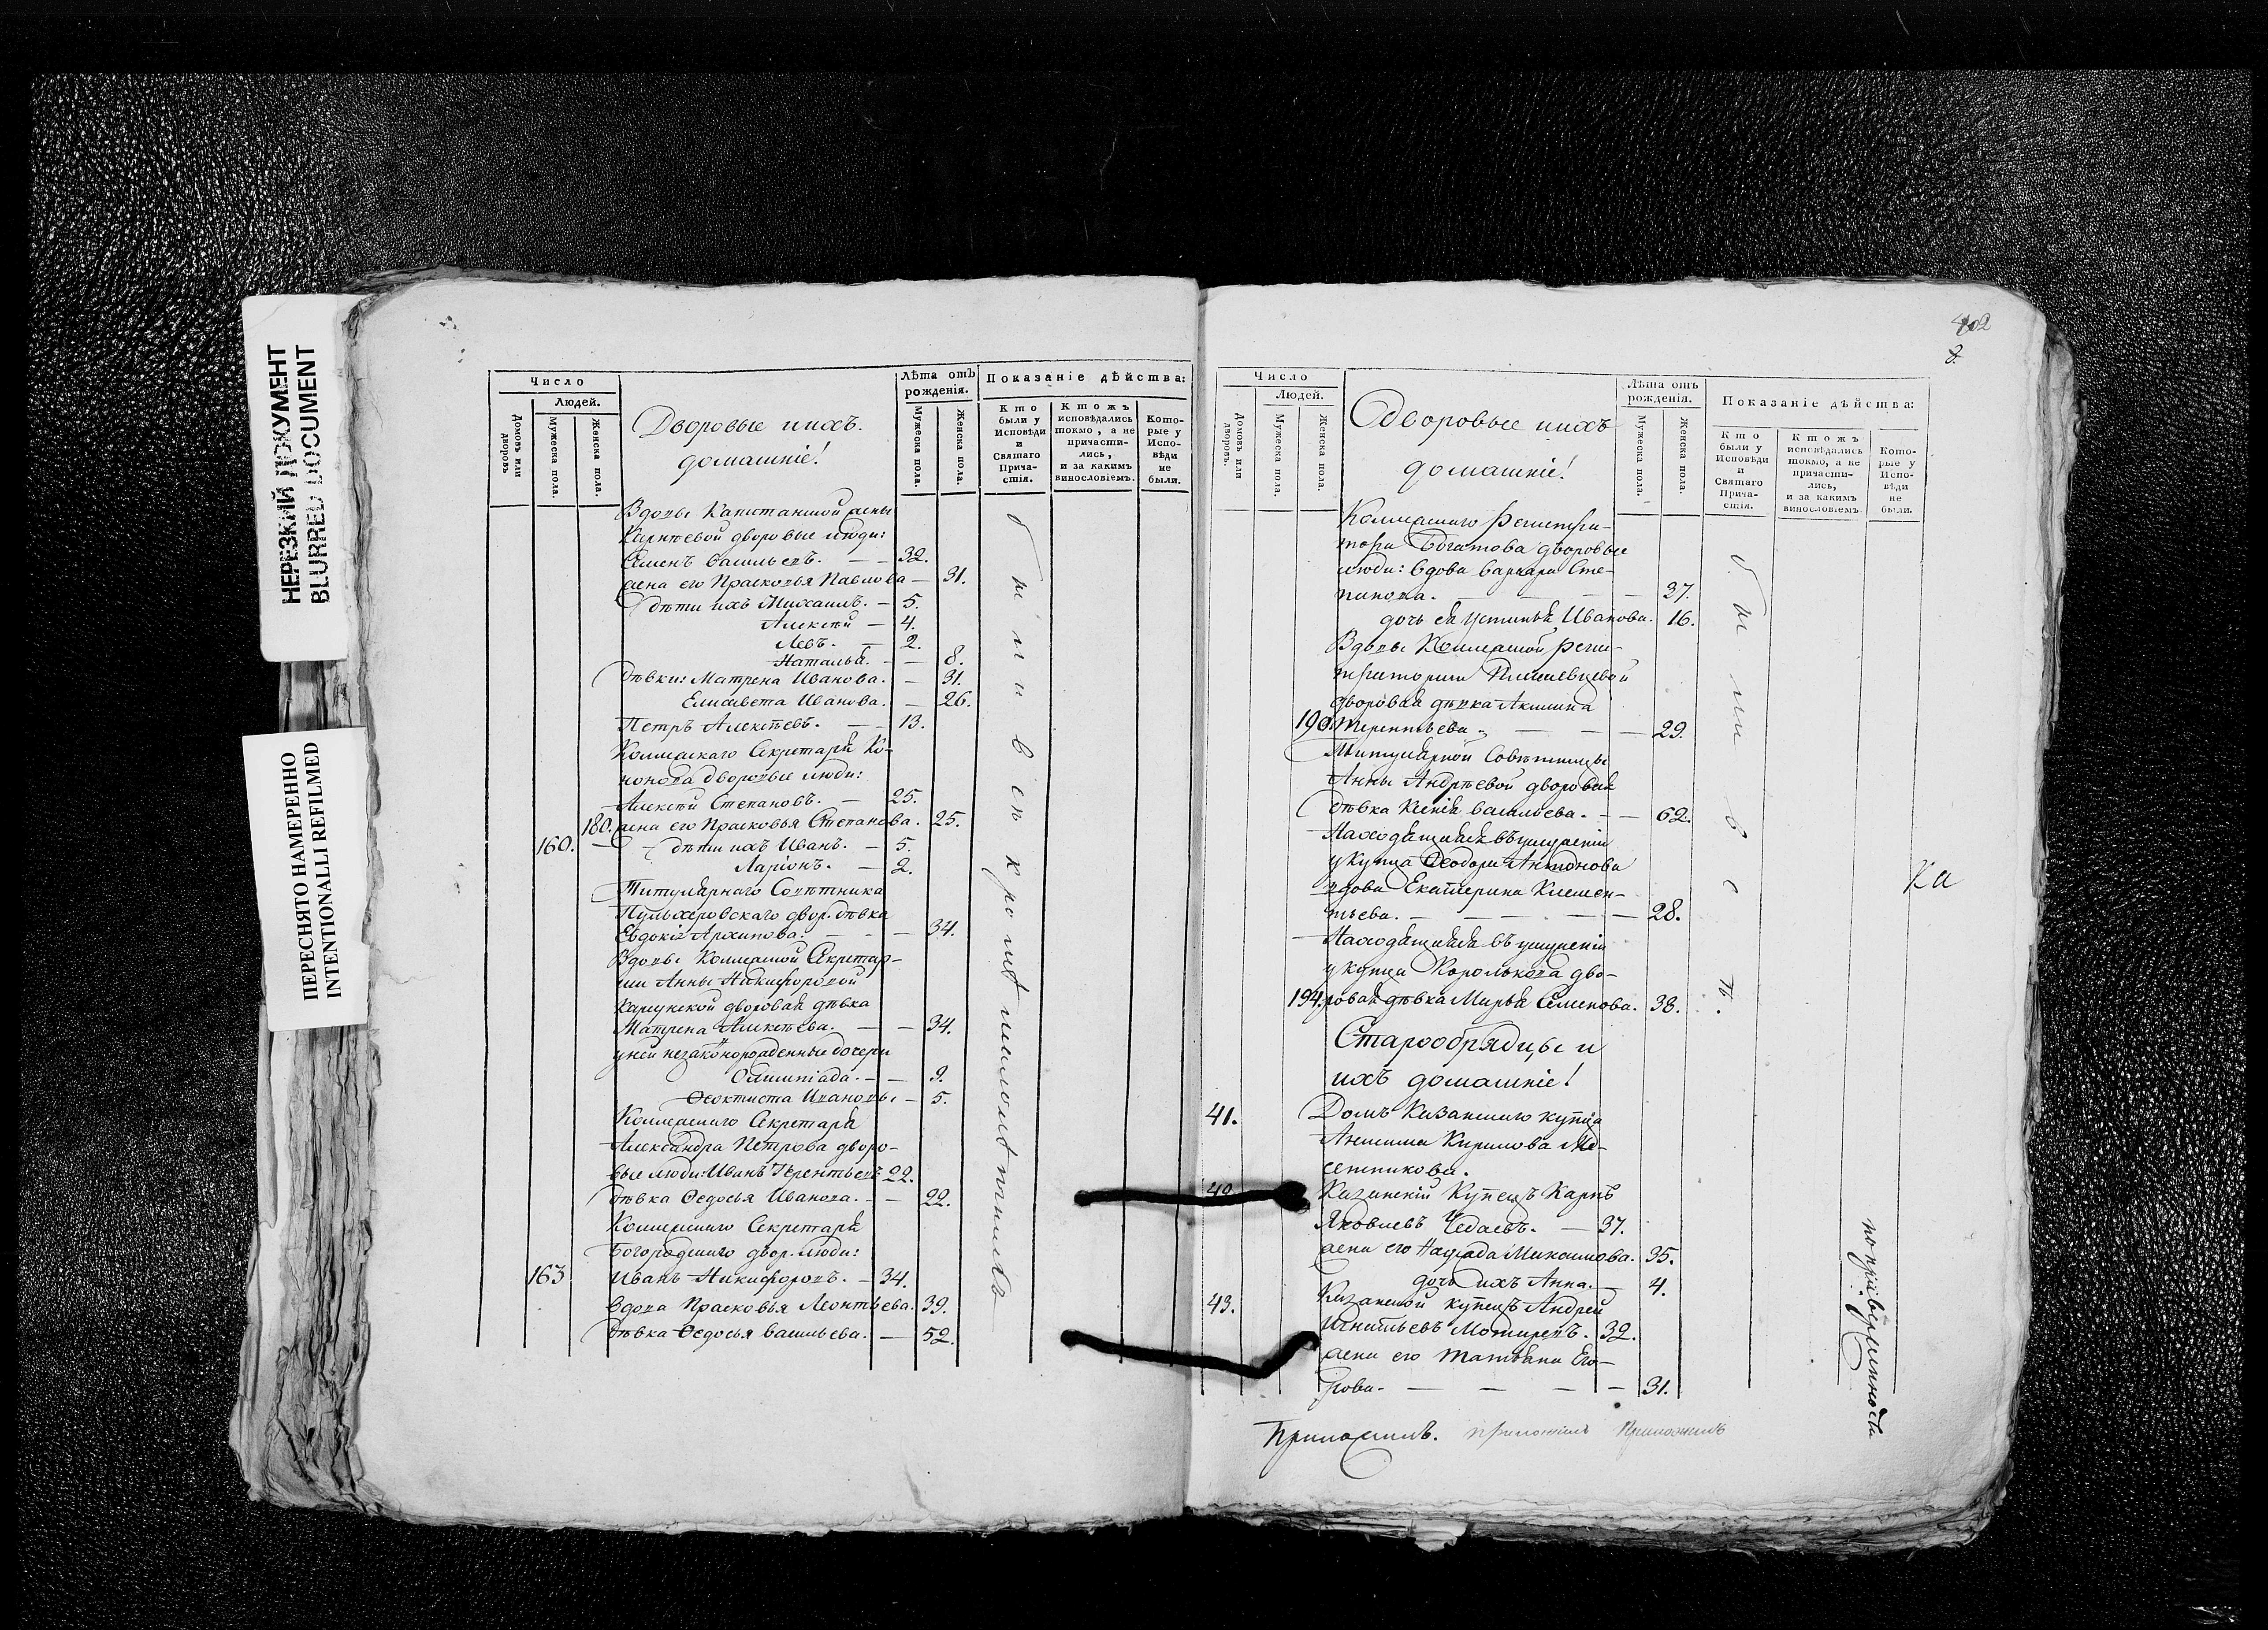 НЕРЕЗКИЙ ДОКУМЕНТ
BLURRED DOCUMENT
ПЕРЕСНЯТО НАМЕРЕННО
INTENTIONALLI REFILMED
Число
Людей.
Домовъ или дворовъ
Мужеска пола.
Женска пола.
Дворовые и ихъ
домашніе!
Лѣта отъ рожденія.
Мужеска пола.
Женска пола.
Показаніе дѣйства:
Кто были у Исповѣди и Святаго Прича-стія.
Ктожъ исповѣдались токмо, а не причасти-лись, и за какимъ винословіемъ.
Кото-рые у Испо-вѣди не были.
Вдовы Капитаншой жены
дворовые люди:
Семенъ Васильевъ. — 32.
жена его Прасковья Павлова — 31.
дѣти ихъ Михаилъ. — 5.
Алексѣй — 4.
Левъ. — 2.
Наталья. — 8.
дѣвки: Матрена Иванова. — 31.
Елисавета Иванова. — 26.
Петръ Алексѣевъ. — 13.
Коллежскаго Секретаря Ко-
нонова дворовые люди:
Алексѣй Степановъ. — 25.
180. жена его Прасковья Степанова. 25.
160. — дѣти ихъ Иванъ. — 5.
Ларіонъ. — 2.
Титулярнаго Совѣтника
Пульхеровскаго двор. дѣвка
Евдокія Архипова. — 34.
Вдовы Коллежской Секретар-
ши Анны Никифоровой
дворовая дѣвка
Матрена Алексѣева. — 34.
у ней незаконорожденные дочери
Олимпіада. — 9.
Ѳеоктиста Ивановы — 5.
Коллежскаго Секретаря
Александра Петрова дворо-
вые люди: Иванъ Терентьевъ 22.
дѣвка Ѳедосья Иванова. — 22.
Коллежскаго Секретаря
Богородскаго двор. люди:
163 Иванъ Никифоровъ. — 34.
вдова Прасковья Леонтьева. 39.
дѣвка Ѳедосья Васильева. — 52.
были и въ
402
Число
Людей.
Домовъ или дворовъ.
Мужеска пола.
Женска пола.
Дворовые и ихъ
домашніе!
Лѣта отъ рожденія.
Мужеска пола.
Женска пола.
Показаніе дѣйства:
Кто были у Исповѣди и Святаго Прича-стія.
Ктожъ исповѣдались токмо, а не причасти-лись, и за какимъ винословіемъ
Кото-рые у Испо-вѣди не были.
Коллежскаго Регистра-
тора Богатова дворовые
люди: вдова Варвара Сте-
панова. — 37.
дочь ея Устинья Иванова. 16.
Вдовы Коллежской Реги-
страторши
дворовая дѣвка Акилина
190 Терентьева. — 29.
Титулярной Совѣтницы
Анны Андрѣевой дворовая
дѣвка Ксенія Васильева. — 62.
Находящаяся въ услуженіи
у купца Ѳеодора Антонова
вдова Екатерина Клемен-
тьева. — 28.
Находящаяся въ услуженіи
у купца Королькова дво-
194. ровая дѣвка Марья Семенова. 38.
были
Старообрядцы и
ихъ домашніе!
41. Домъ Казанскаго купца
Анисима Кирилова Ме-
сетникова.
42 Казанскій Купецъ Карпъ
Яковлевъ Чедаевъ. — 37.
жена его Надежда Максимова. 35.
дочь ихъ Анна. — 4.
43. Казанской купецъ Андрей
Игнатьевъ — 32.
жена его Татьяна Его-
рова. — 31.
Ка
Приложилъ. приложилъ Приложилъ